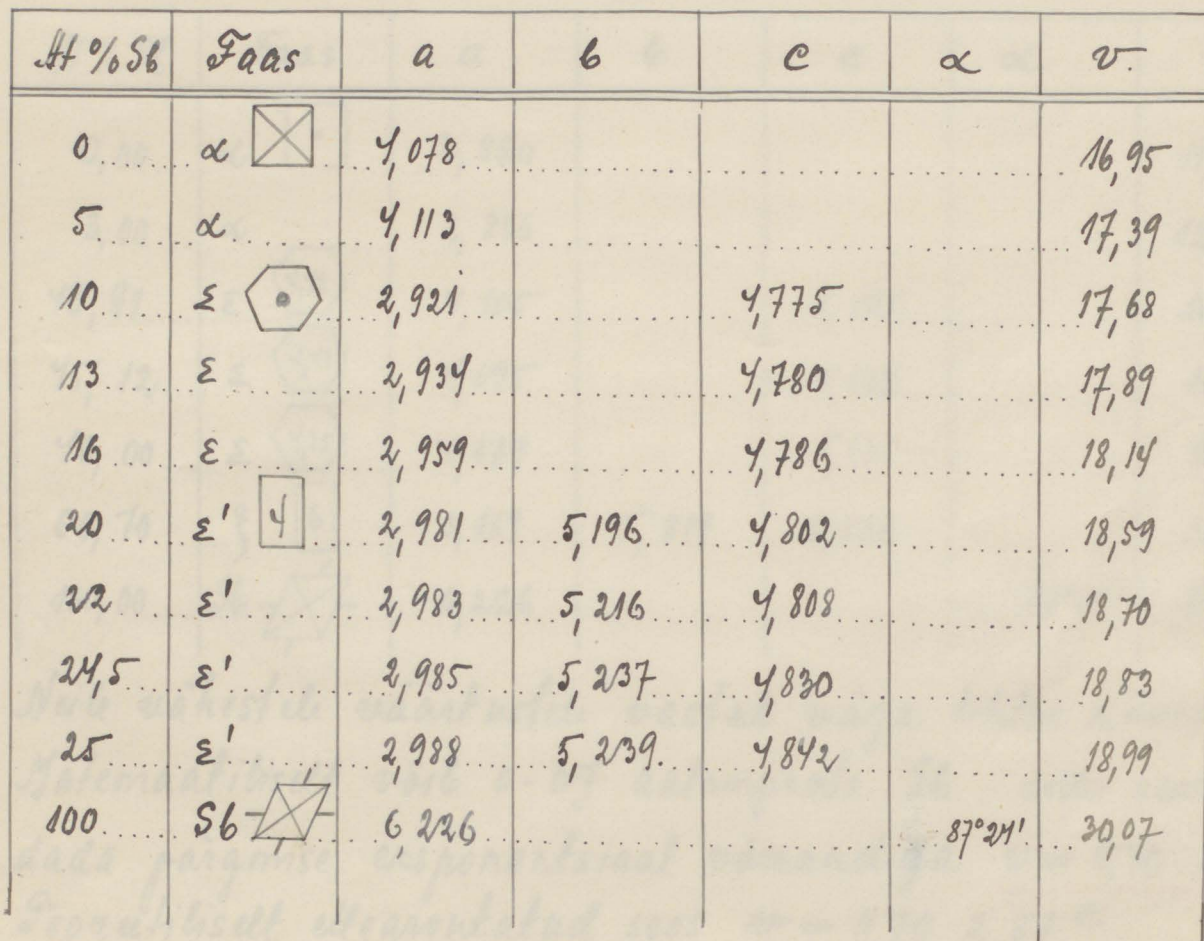 At % Sb Faas a b c α v.
0 α 4,078 16,95
5 α 4,113 17,39
10 ε 2,921 4,775 17,68
13 ε 2,934 4,780 17,89
16 ε 2,959 4,786 18,14
20 ε' 4 2,981 5,196 4,802 18,59
22 ε' 2,983 5,216 4,808 18,70
24,5 ε' 2,985 5,237 4,830 18,83
25 ε' 2,988 5,239. 4,842 18,99
100 Sb 6,226 87°24' 30,07